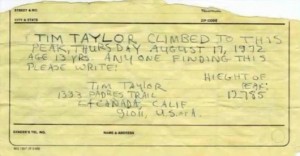 STREET & NO.
CITY & STATE
ZIP CODE
TIM TAYLOR CLIMBED TO THIS
PEAK, THURSDAY AUGUST 17, 1972
AGE 13 YRS. ANY ONE FINDING THIS
PLEASE WRITE:
HIEGHT OF
TIM TAYLOR
PEAK:
1333 PADRES TRAIL
12,785
LA CANADA, CALIF
91011, U.S.A.
SENDER'S TEL. NO.